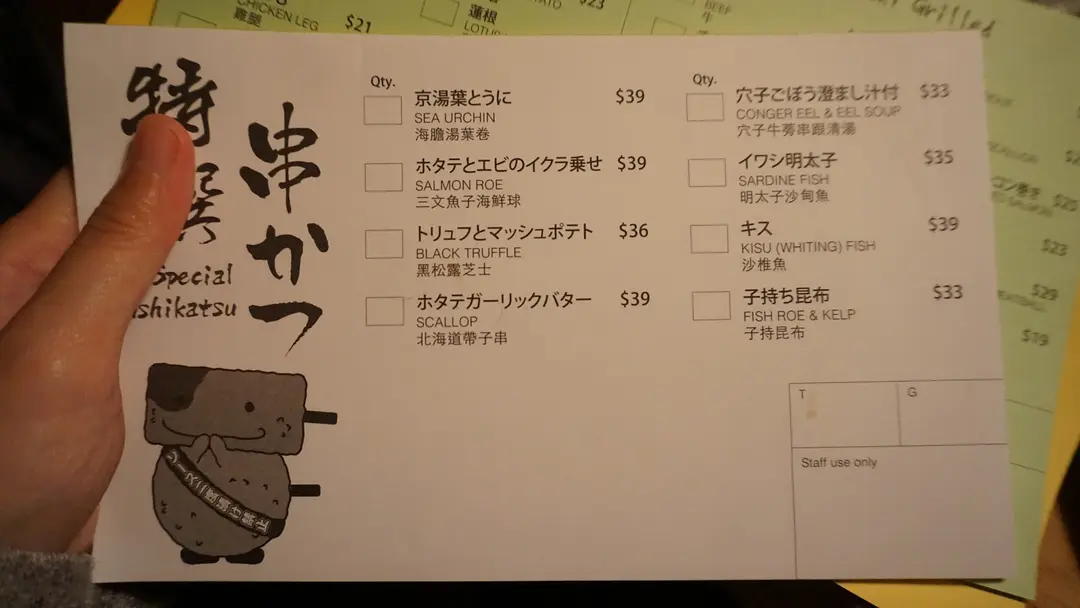 CHICKEN LEG
雞腿
$21
蓮根
$23
BEEF
牛
Grilled
特
串かつ
Special
shikatsu
Qty.
京湯葉とうに $39
SEA URCHIN
海膽湯葉卷
ホタテとエビのイクラ乗せ $39
SALMON ROE
三文魚子海鮮球
トリュフとマッシュポテト $36
BLACK TRUFFLE
黑松露芝士
ホタテガーリックバター $39
SCALLOP
北海道帶子串
Qty.
穴子ごぼう澄まし汁付 $33
CONGER EEL & EEL SOUP
穴子牛蒡串跟清湯
イワシ明太子 $35
SARDINE FISH
明太子沙甸魚
キス $39
KISU (WHITING) FISH
沙椎魚
子持ち昆布 $33
FISH ROE & KELP
子持昆布
T
G
Staff use only
ソース二度漬け禁止
$23
$29
$19